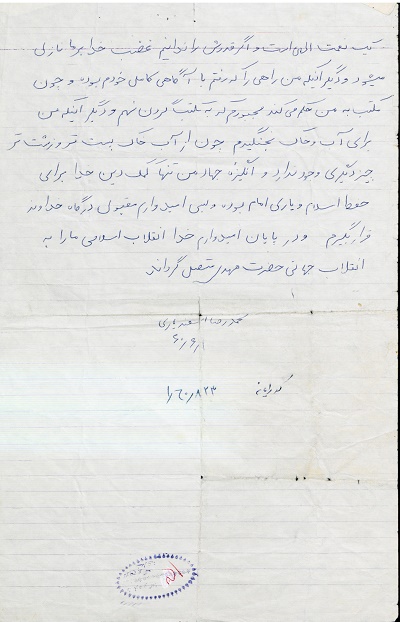 یک نعمت الهی است و اگر قدرش را ندانیم غضب خدا بر ما نازل
میشود و دیگر اینکه من راهی را که رفتم با آگاهی کامل خودم بوده و چون
مکتب به من حکم می‌کند مجبورم که به مکتب گردن نهم و دیگر اینکه من
برای آب و خاک نجنگیدم چون از آب خاک پست تر و زشت تر
چیز دیگری وجود ندارد و انگیزه جهاد من تنها کمک دین خدا برای
حفظ اسلام و یاری امام بوده و بس امیدوارم مقبول درگاه خداوند
قرار بگیرم و در پایان امیدوارم خدا انقلاب اسلامی ما را به
انقلاب جهانی حضرت مهدی متصل گرداند
محمدرضا
۶۰٫۶٫۱
۶۰٫۸٫۲۳